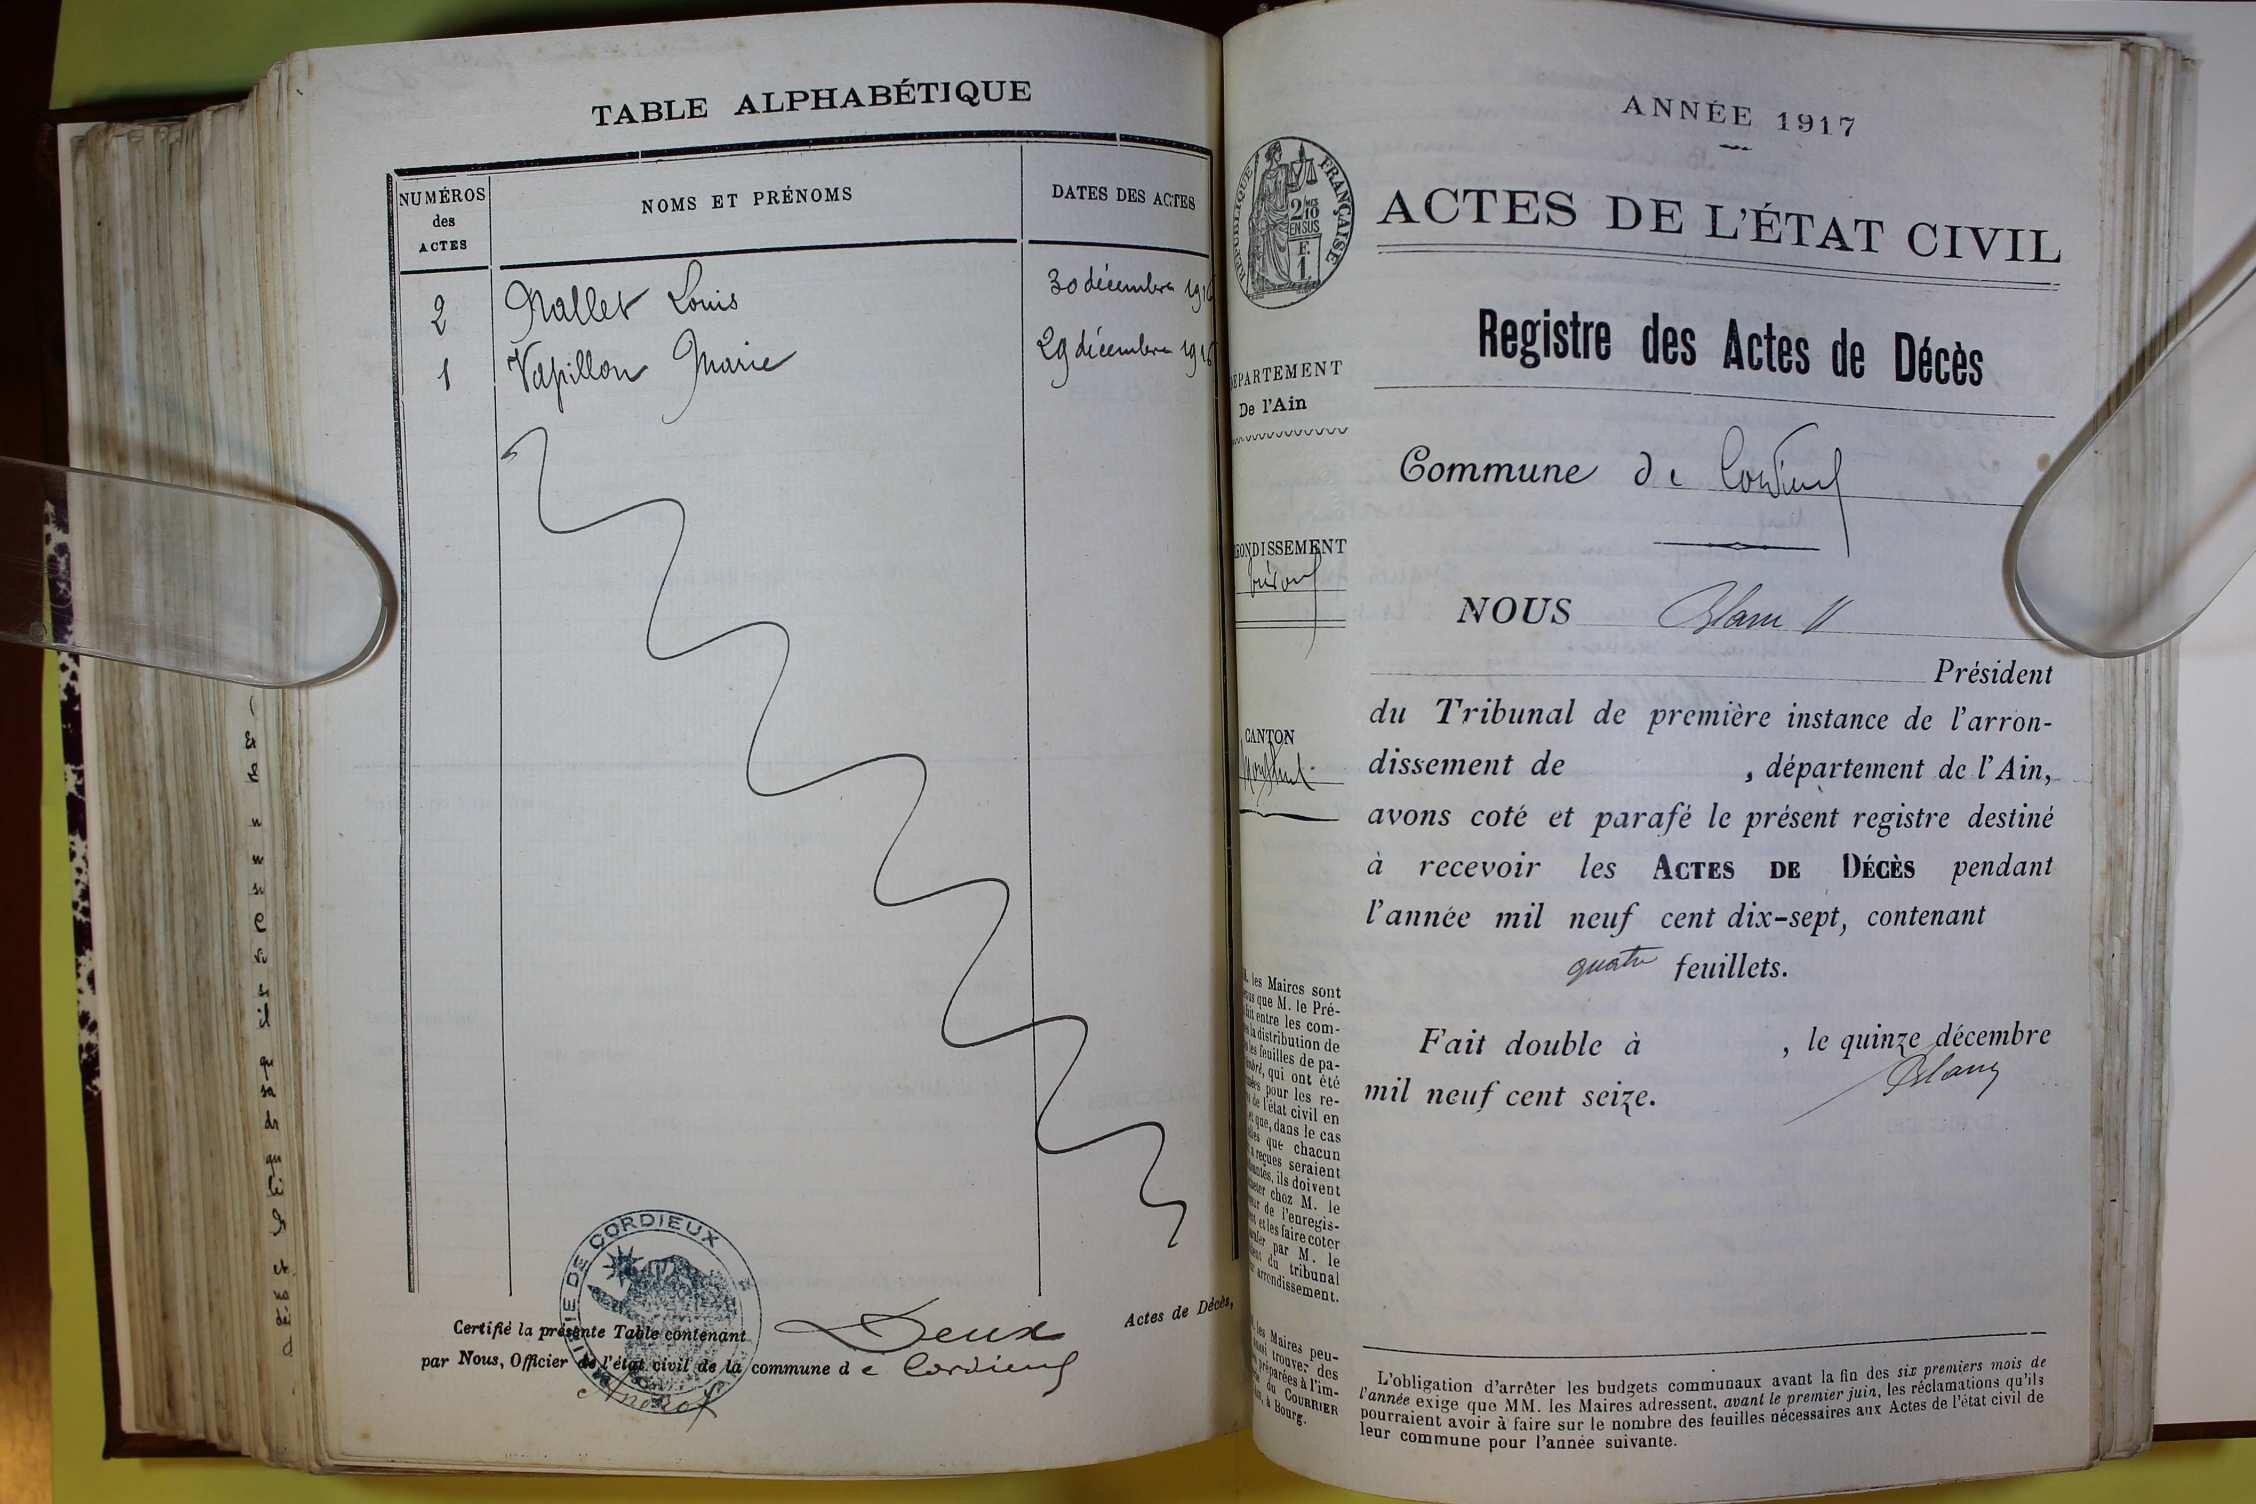 TABLE ALPHABÉTIQUE
NUMÉROS
des
ACTES
NOMS ET PRÉNOMS
DATES DES ACTES
2 Mallet Louis 30 décembre 191
1 Vapillon Marie 29 décembre 1916
MAIRIE DE CORDIEUX
Certifié la présente Table contenant Deux Actes de Décès,
par Nous, Officier de l'état civil de la commune de Cordieux
ANNÉE 1917
RÉPUBLIQUE FRANÇAISE
2/10
EN SUS
F.
1
ACTES DE L'ÉTAT CIVIL
Registre des Actes de Décès
DÉPARTEMENT
De l'Ain
Commune de Cordieux
ARRONDISSEMENT
CANTON
NOUS Blanc
Président
du Tribunal de première instance de l'arron-
dissement de , département de l'Ain,
avons coté et parafé le présent registre destiné
à recevoir les ACTES DE DÉCÈS pendant
l'année mil neuf cent dix-sept, contenant
quatre feuillets.
Fait double à , le quinze décembre
mil neuf cent seize.
Blanc
M. les Maires sont
que M. le Pré-
fait entre les com-
la distribution de
les feuilles de pa-
qui ont été
pour les re-
de l'état civil en
que, dans le cas
que chacun
reçues seraient
ils doivent
chez M. le
de l'enregis-
et les faire coter
par M. le
du tribunal
arrondissement.
les Maires peu-
trouver des
préparées à l'im-
du COURRIER
à Bourg.
L'obligation d'arrêter les budgets communaux avant la fin des six premiers mois de
l'année exige que MM. les Maires adressent, avant le premier juin, les réclamations qu'ils
pourraient avoir à faire sur le nombre des feuilles nécessaires aux Actes de l'état civil de
leur commune pour l'année suivante.